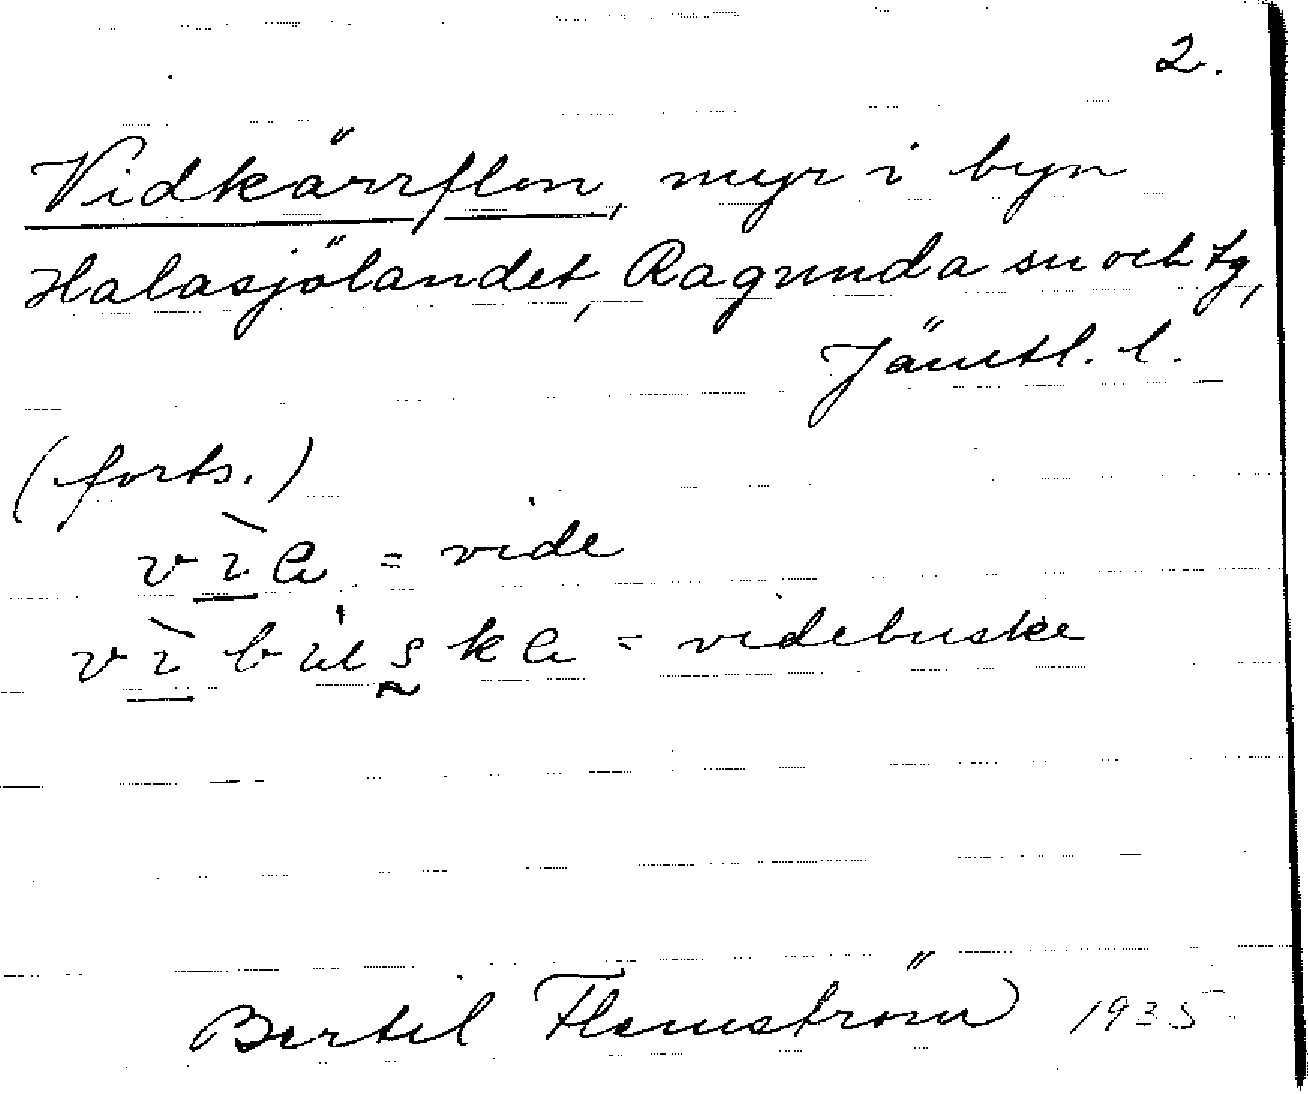 2.
Vidkärrflon, myr i byn
Halasjölandet, Ragunda sn och tg,
Jämtl. l.
(forts.)
= vide
= videbuske
Bertil Flemström 1935